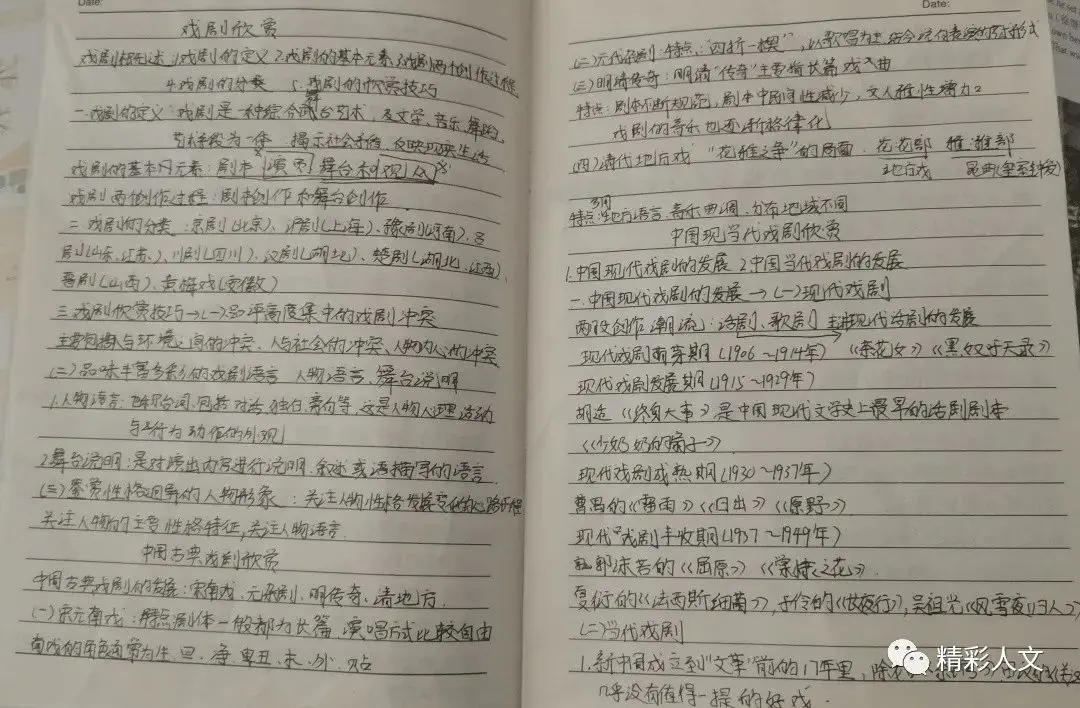 Date:
戏剧欣赏
戏剧概述 1戏剧的定义 2.戏剧的基本元素 3戏剧两个创作过程
4.戏剧的分类 5.戏剧的欣赏技巧
一.戏剧的定义:戏剧是一种综合舞台艺术,及文学、音乐、舞蹈
艺术手段为一体 揭示社会矛盾,反映现实生活
戏剧的基本四元素:剧本 演员 舞台和观众
戏剧两创作过程:剧本创作和舞台创作
二.戏剧的分类:京剧(北京)、沪剧(上海)、豫剧(河南)、吕
剧(山东、江苏、)、川剧(四川)、汉剧(湖北)、楚剧(湖北、江西)、
晋剧(山西)、黄梅戏(安徽)
三.戏剧欣赏技巧→(一)品评高度集中的戏剧冲突
主要包括人与环境之间的冲突、人与社会的冲突、人物内心的冲突
(二)品味丰富多彩的戏剧语言 人物语言、舞台说明
1.人物语言:也称台词,包括对话、独白、旁白等,这是人物心理活动
与行为动作的外观
2.舞台说明:是对演出内容进行说明、叙述或描写的语言
(三)鉴赏性格迥异的人物形象:关注人物性格发展变化的心路历程
关注人物的主要性格特征,关注人物语言
中国古典戏剧欣赏
中国古典戏剧的发展:宋南戏、元杂剧、明传奇、清地方
(一)宋元南戏:特点剧体一般都为长篇 演唱方式比较自由
南戏的角色通常为生、旦、净、丑、末、外、贴
Date:
(二)元代杂剧:特点:"四折一楔",以歌唱为主 结合说白表演的形式
(三)明清传奇:明清"传奇"主要指长篇戏曲
特点:剧本不断规范,剧本中民间性减少,文人雅性增加
戏剧的音乐也逐渐格律化
(四)清代地方戏 "花雅之争"的局面 花:花部 雅:雅部
地方戏 昆曲
特点:地方语言、音乐曲调、分布地域不同
中国现当代戏剧欣赏
1.中国现代戏剧的发展 2.中国当代戏剧的发展
一.中国现代戏剧的发展→(一)现代戏剧
两股创作潮流:话剧、歌剧 主进现代话剧的发展
现代戏剧萌芽期(1906~1914年) 《茶花女》《黑奴吁天录》
现代戏剧发展期(1915~1929年)
胡适《终身大事》是中国现代文学史上最早的话剧剧本
《少奶奶的扇子》
现代戏剧成熟期(1930~1937年)
曹禺的《雷雨》《日出》《原野》
现代戏剧丰收期(1937~1949年)
郭沫若的《屈原》《棠棣之花》
夏衍的《法西斯细菌》,于伶的《长夜行》,吴祖光《风雪夜归人》
(二)当代戏剧
1.新中国成立到"文革"前的17年里,除
几乎没有值得一提的好戏.
精彩人文